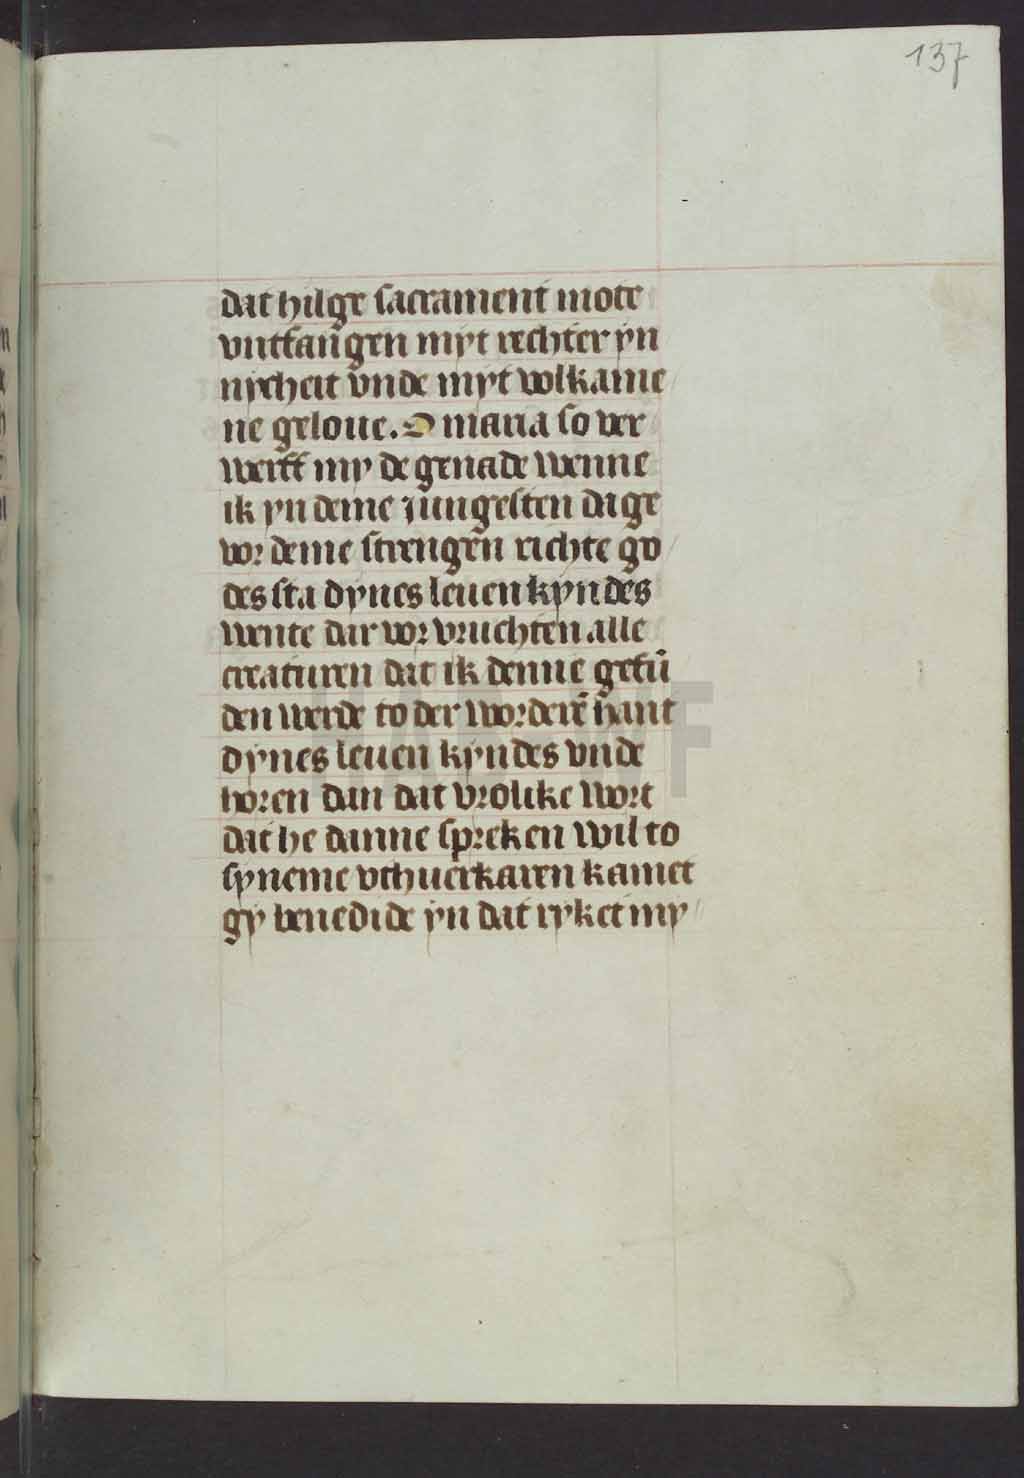 137
dat hilge sacrament mote
vntfangen myt rechter yn
nycheit vnde myt volkame
ne geloue. O maria so ver
werff my de genade wenne
ik yn deme jungesten dage
vor deme strengen richte go
des sta dynes leuen kyndes
wente dar vor vruchten alle
creaturen dat ik denne gefū
den werde to der vorderē hant
dynes leuen kyndes vnde
horen dan dat vrolike wort
dat he danne spreken wil to
syneme vthuerkaren kamet
gy benedide yn dat ryket my